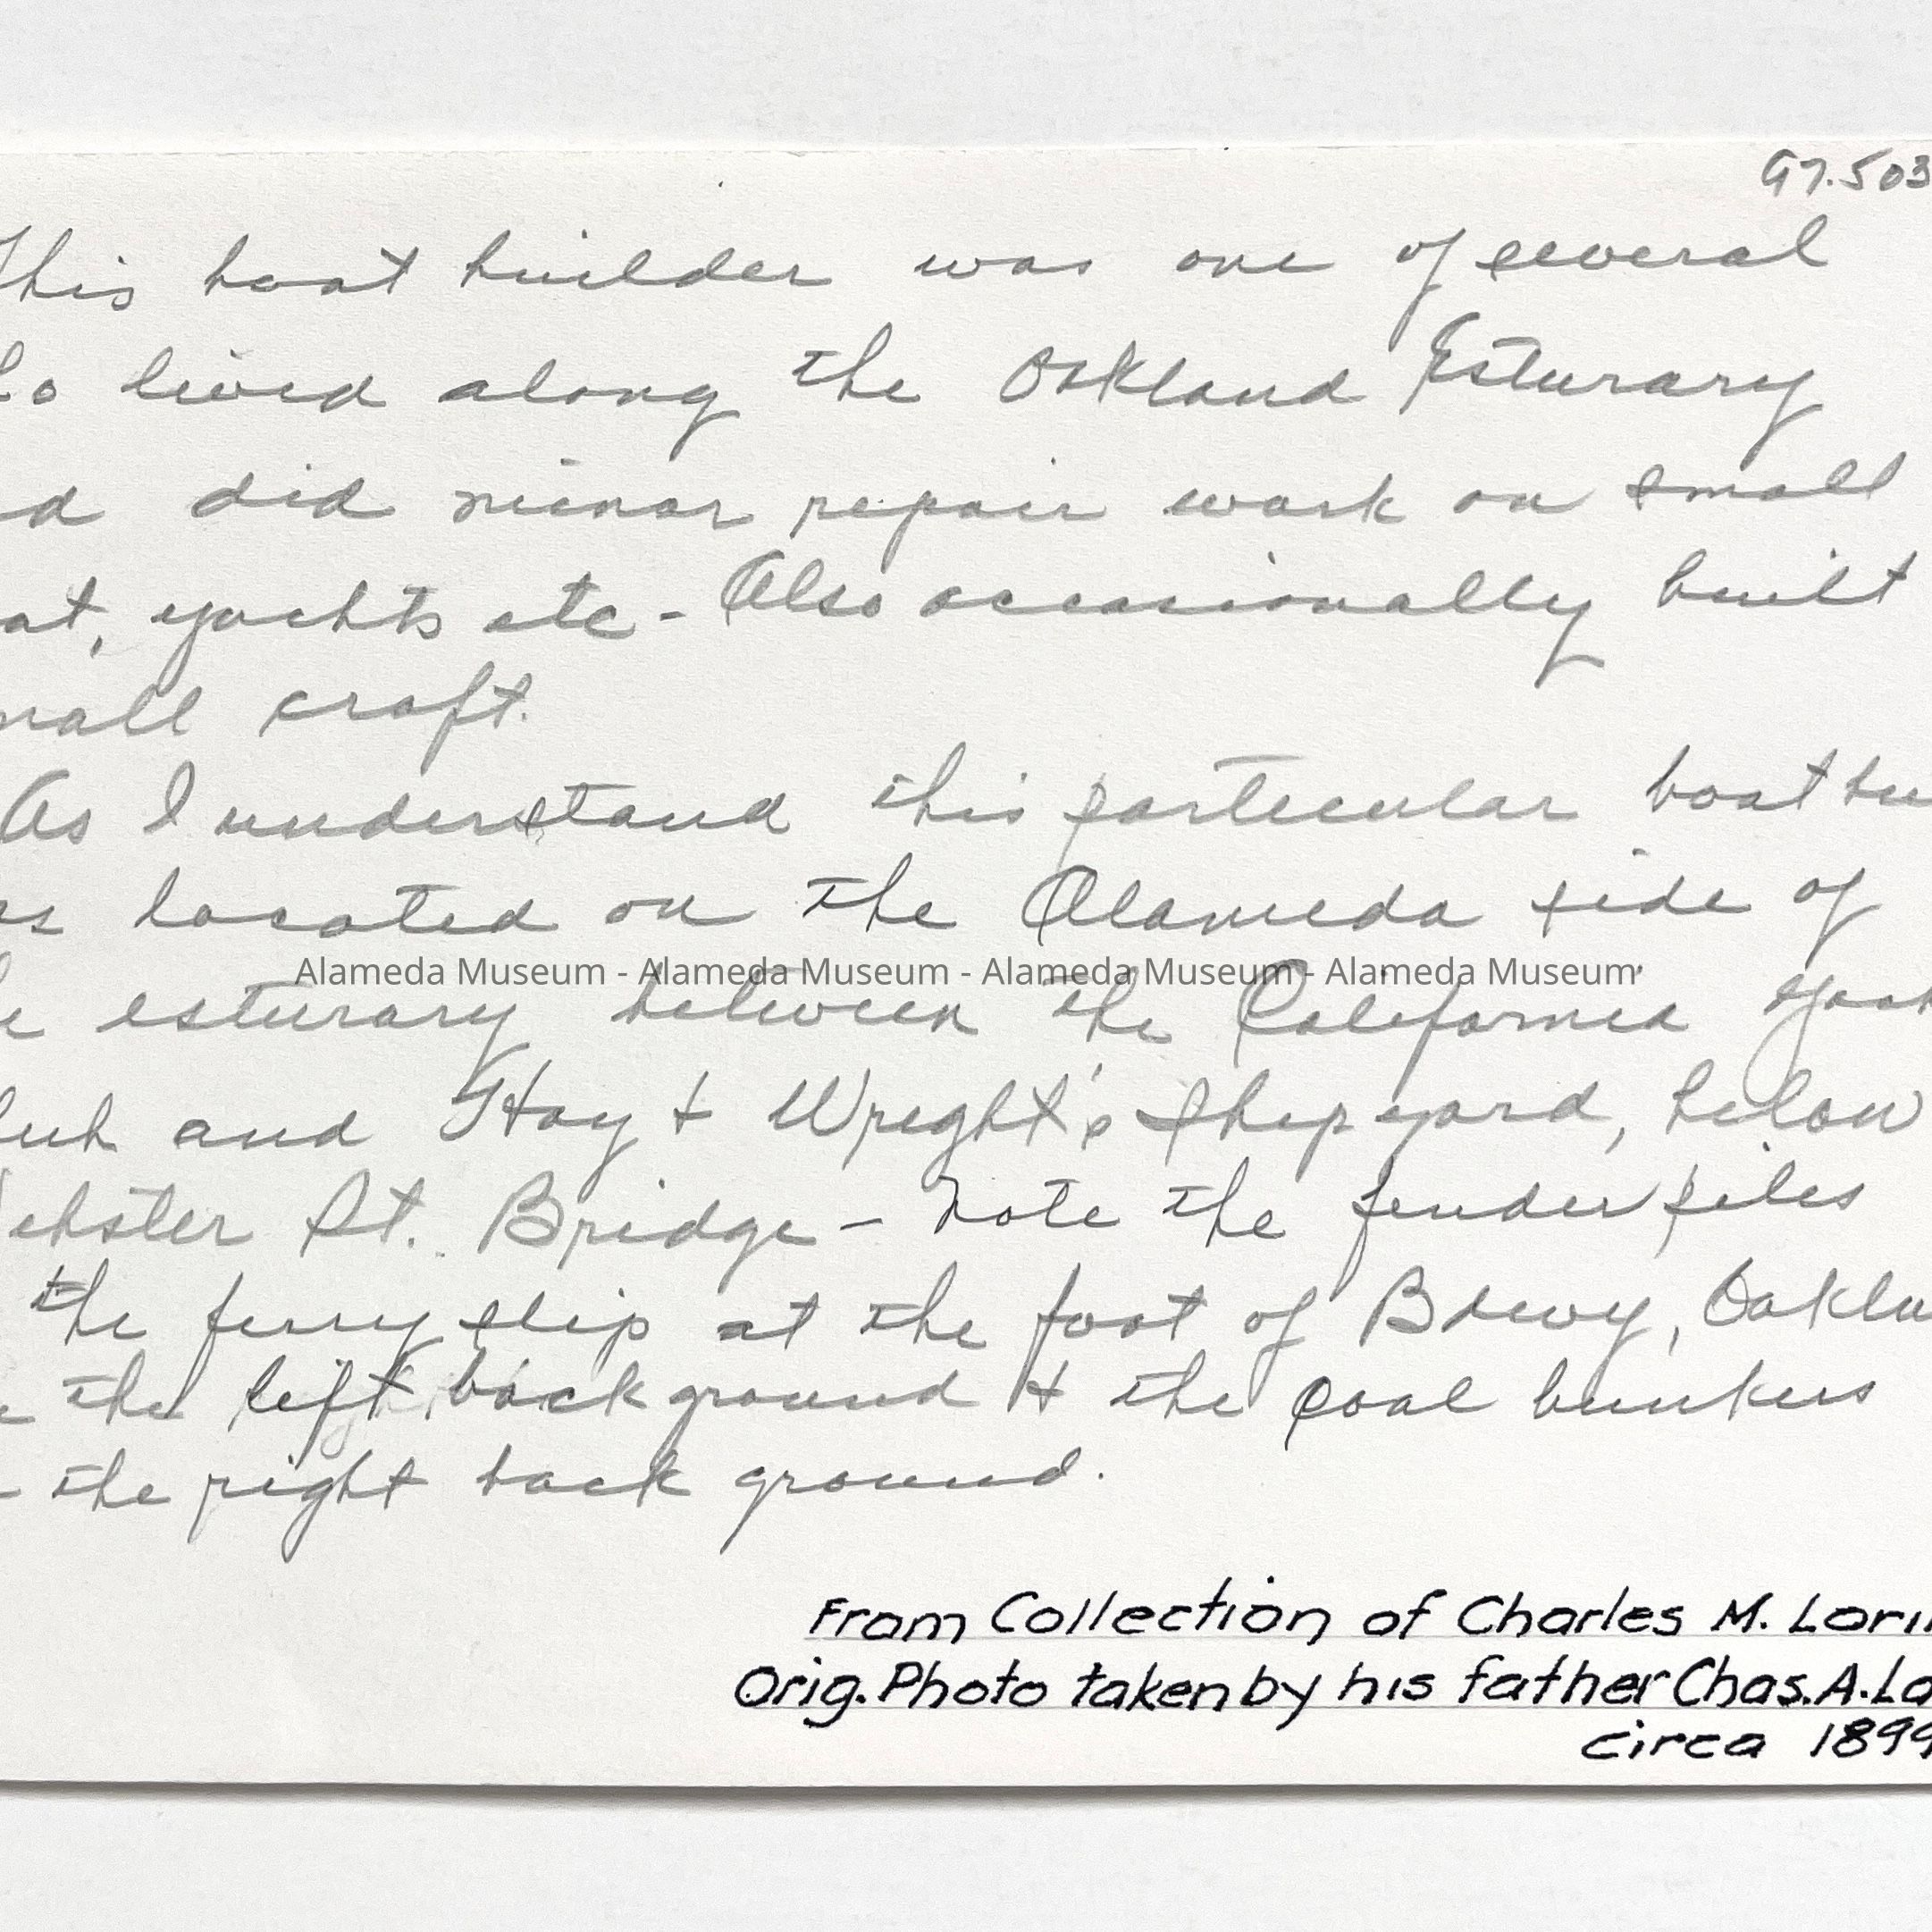 97.503
This boat builder was one of several
ho lived along the Oakland Esturary
d did minor repair work on small
at, yachts etc - Also occasionally built
mall craft.
As I understand this particular boat bu
as located on the Alameda side of
Alameda Museum - Alameda Museum - Alameda Museum - Alameda Museum
e esturary between the California Yach
lub and Hay & Wright's Shipyard, below
ebster St. Bridge - Note the fender piles
the ferry slip at the foot of Bdwy, Oaklan
the left back ground & the coal bunkers
the right back ground.
From Collection of Charles M. Lori
Orig. Photo taken by his father Chas. A. Lo
circa 1899